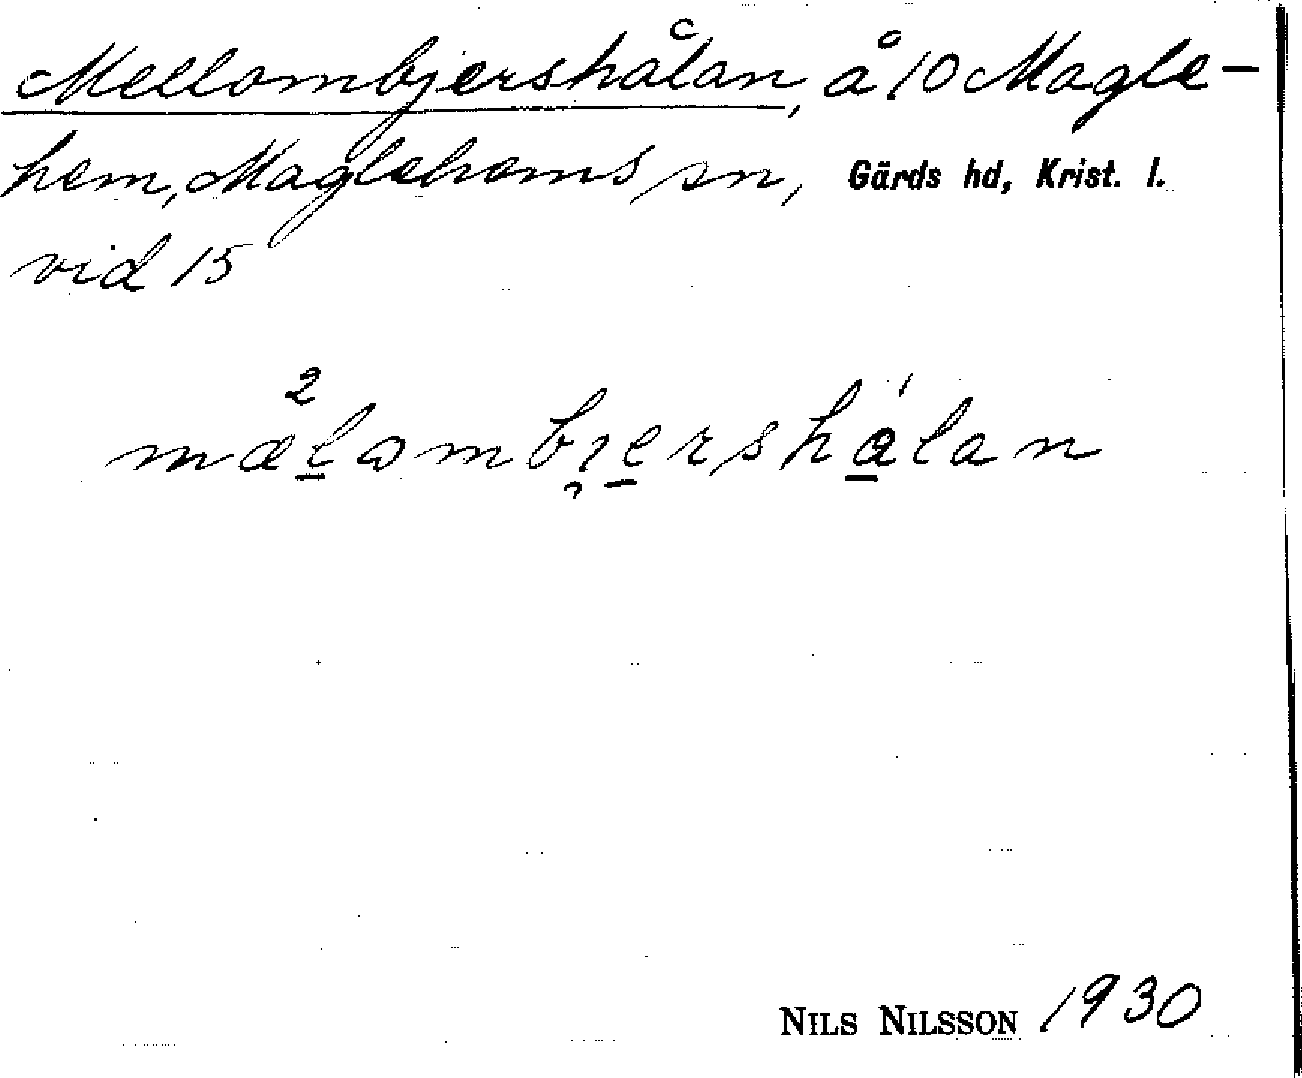 Mellombjershålan, å 10 Magle-
hem, Maglehems sn, Gärds hd, Krist. l.
vid 15
2
mælombjershålan
NILS NILSSON 1930